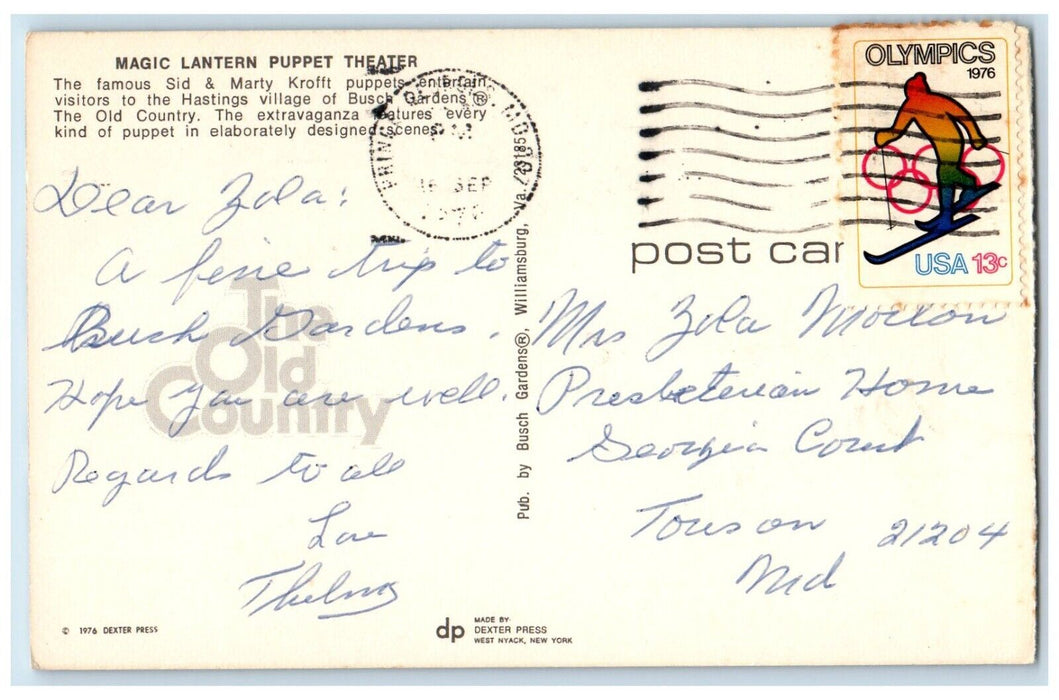 MAGIC LANTERN PUPPET THEATER
The famous Sid & Marty Krofft puppets entertain
visitors to the Hastings village of Busch Gardens®
The Old Country. The extravaganza features every
kind of puppet in elaborately designed scenes.
Dear Zola:
A fine trip to
Busch Gardens.
Hope you are well.
Regards to all
Love
Thelma
The
Old
Country
© 1976 DEXTER PRESS
Pub. by Busch Gardens®, Williamsburg, Va. /23185
dp
MADE BY
DEXTER PRESS
WEST NYACK, NEW YORK
16 SEP
OLYMPICS
1976
USA 13c
post car
Mrs Zola
Presbeterian Home
Georgia Court
Towson 21204
Md